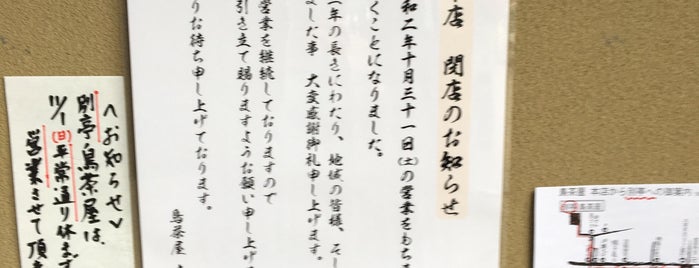 店 閉店のお知らせ
和二年十月三十一日(土)の営業をもちま
くことになりました。
年の長きにわたり、地域の皆様、そし
ました事 大変感謝御礼申し上げます。
営業を継続しておりますので
引き立て賜りますようお願い申し上げ
りお待ち申し上げております。
鳥茶屋
<お知らせ>
別亭鳥茶屋は、
(日)平常通り休まず
営業させて頂
鳥茶屋 本店から別亭への御案内